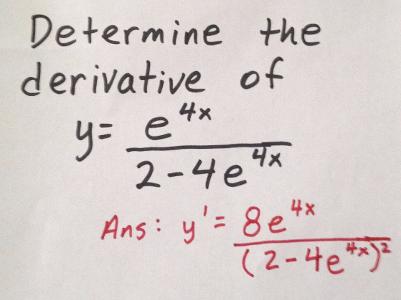 Determine the
derivative of
y= e^4x / 2-4e^4x
Ans: y'= 8e^4x / (2-4e^4x)^2